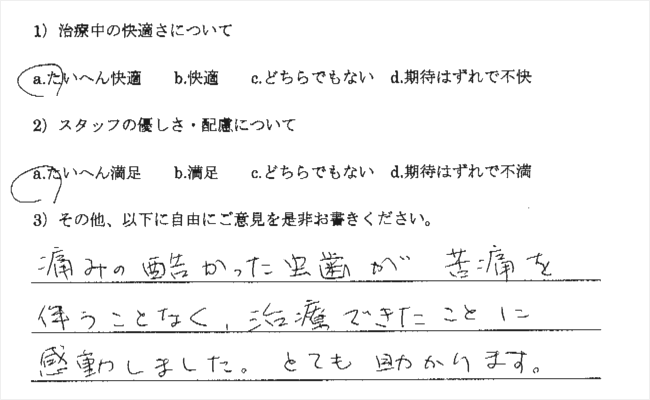 1）治療中の快適さについて
a.たいへん快適　b.快適　c.どちらでもない　d.期待はずれで不快
2）スタッフの優しさ・配慮について
a.たいへん満足　b.満足　c.どちらでもない　d.期待はずれで不満
3）その他、以下に自由にご意見を是非お書きください。
痛みの酷かった虫歯が 苦痛を
伴うことなく、治療できたことに
感動しました。とても助かります。